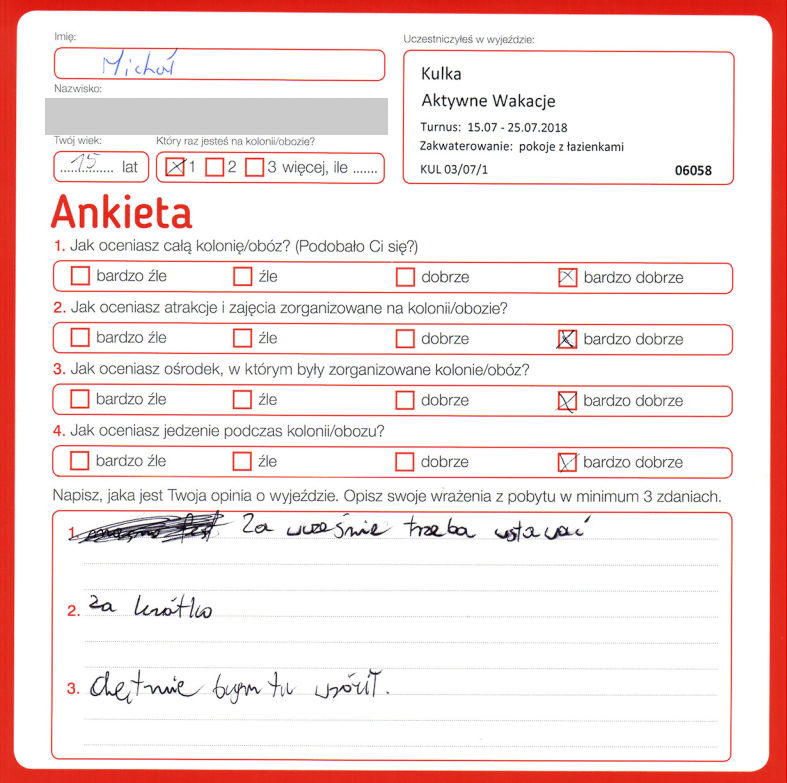 Imię:
Michał
Nazwisko:
Twój wiek:
15 lat
Który raz jesteś na kolonii/obozie?
1 2 3 więcej, ile .......
Uczestniczyłeś w wyjeździe:
Kulka
Aktywne Wakacje
Turnus: 15.07 - 25.07.2018
Zakwaterowanie: pokoje z łazienkami
KUL 03/07/1 06058
Ankieta
1. Jak oceniasz całą kolonię/obóz? (Podobało Ci się?)
bardzo źle źle dobrze bardzo dobrze
2. Jak oceniasz atrakcje i zajęcia zorganizowane na kolonii/obozie?
bardzo źle źle dobrze bardzo dobrze
3. Jak oceniasz ośrodek, w którym były zorganizowane kolonie/obóz?
bardzo źle źle dobrze bardzo dobrze
4. Jak oceniasz jedzenie podczas kolonii/obozu?
bardzo źle źle dobrze bardzo dobrze
Napisz, jaka jest Twoja opinia o wyjeździe. Opisz swoje wrażenia z pobytu w minimum 3 zdaniach.
1. Za wcześnie trzeba wstawać
2. za krótko
3. chętnie bym tu wrócił.